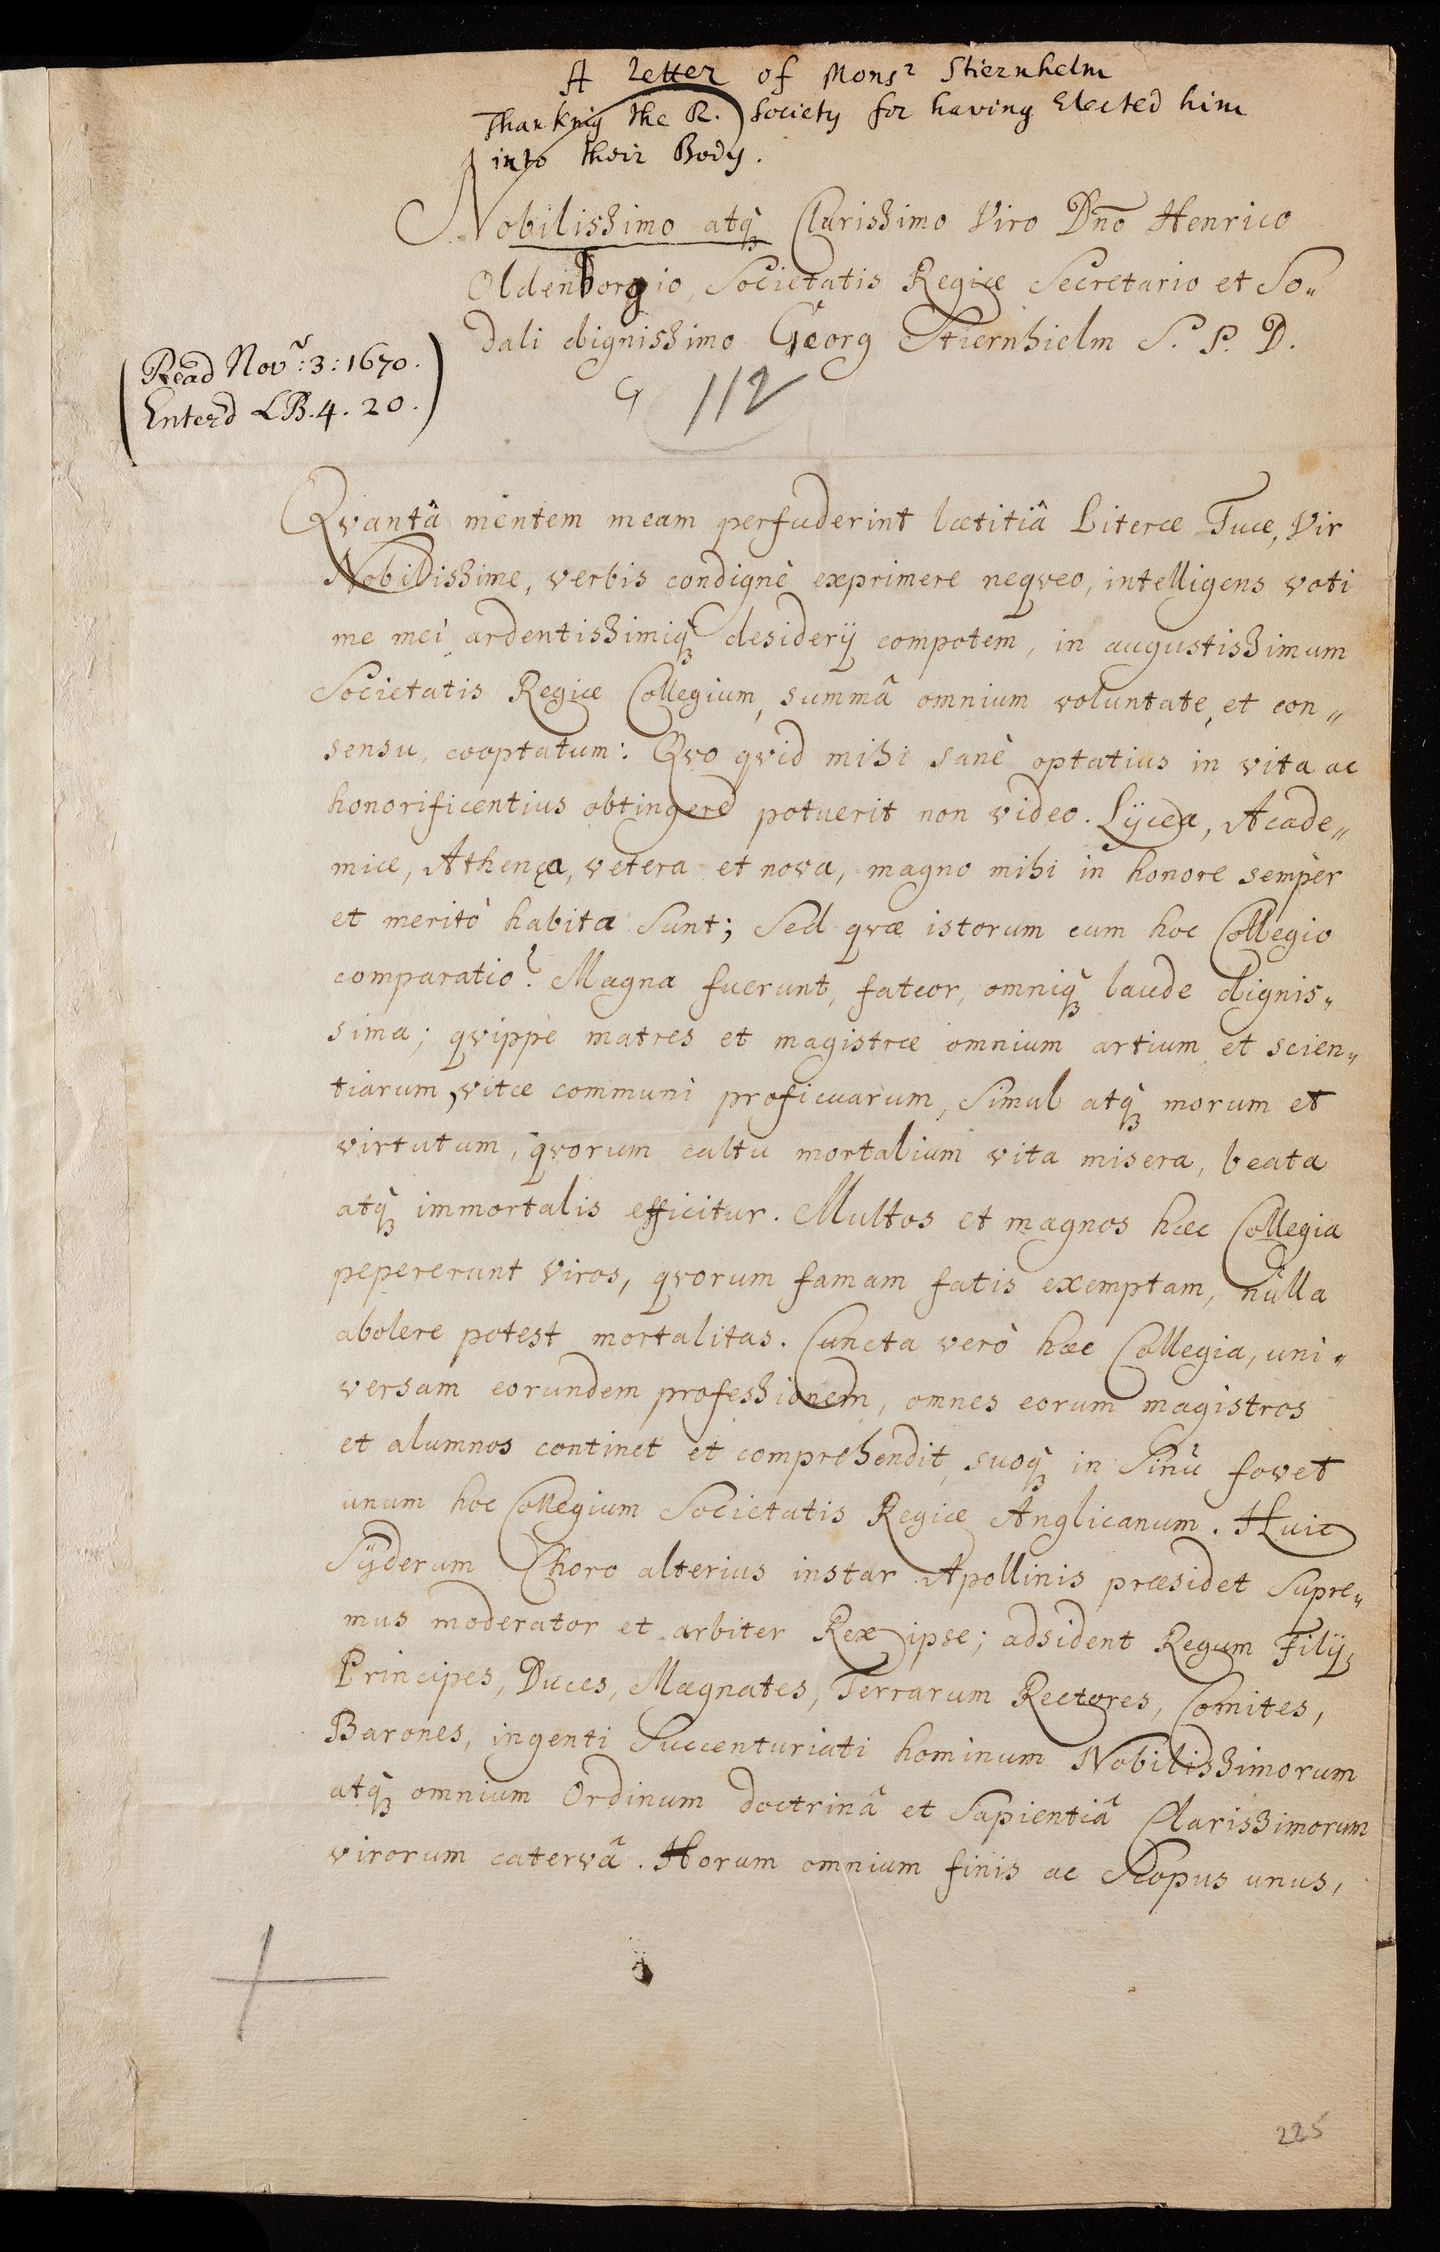 A Letter of Monsr Stiernhelm
Thanking the R. Society for having Elected him
into their Body.
Nobilissimo atq̀ Clarissimo Viro Dño Henrico
Oldenborgio, Societatis Regiæ Secretario et So„
dali dignissimo Georg Stiernhielm S. P. D.
(Read Novr: 3: 1670.
Enterd LB. 4. 20.)
G 112
Qvantâ mentem meam perfuderint lætitiâ Literæ Tuæ, Vir
Nobilissime, verbis condignè exprimere neqveo, intelligens voti
me mei ardentissimiq̀ desiderij compotem, in augustissimum
Societatis Regiæ Collegium, summâ omnium voluntate, et con„
sensu, cooptatum: Qvo qvid mihi sanè optatius in vita ac
honorificentius obtingere potuerit non video. Lÿcea, Acade„
miæ, Athenæa, vetera et nova, magno mihi in honore semper
et meritò habita sunt; Sed qvæ istorum cum hoc Collegio
comparatio? Magna fuerunt, fateor, omniq̀ laude dignis„
sima; qvippè matres et magistræ omnium artium et scien„
tiarum, vitæ communi proficuarum, Simul atq̀ morum et
virtutum, qvorum cultu mortalium vita misera, beata
atq̀ immortalis efficitur. Multos et magnos hæc Collegia
pepererunt viros, qvorum famam fatis exemptam, nulla
abolere potest mortalitas. Cuncta verò hæc Collegia, uni„
versam eorundem professionem, omnes eorum magistros
et alumnos continet et comprehendit, suoq̀ in Sinu fovet
unum hoc Collegium Societatis Regiæ Anglicanum. Huic
Sÿderum Choro alterius instar Apollinis præsidet Supre„
mus moderator et arbiter Rex ipse; adsident Regum Filij,
Principes, Duces, Magnates, Terrarum Rectores, Comites,
Barones, ingenti Succenturiati hominum Nobilissimorum
atq̀ omnium Ordinum doctrinâ et Sapientiâ Clarissimorum
virorum catervâ. Horum omnium finis ac Scopus unus,
225